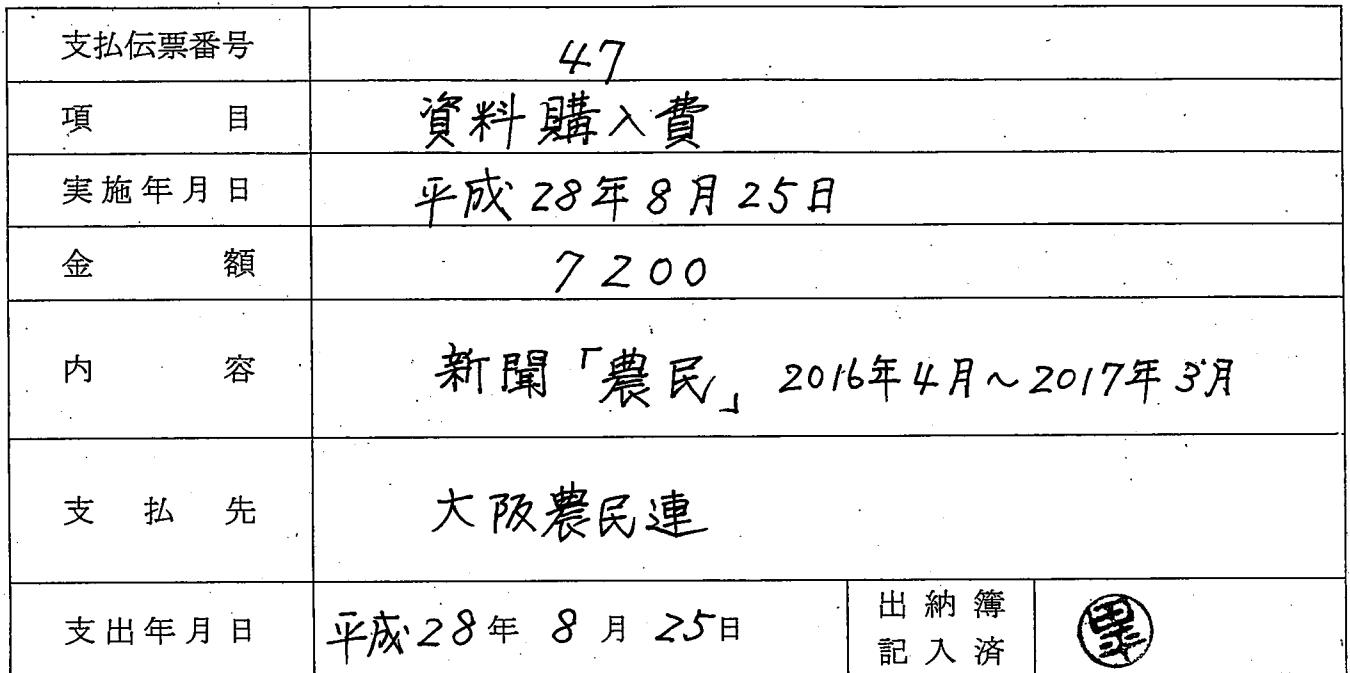 支払伝票番号 47
項目 資料購入費
実施年月日 平成28年8月25日
金額 7200
内容 新聞「農民」2016年4月~2017年3月
支払先 大阪農民連
支出年月日 平成28年8月25日 出納簿記入済